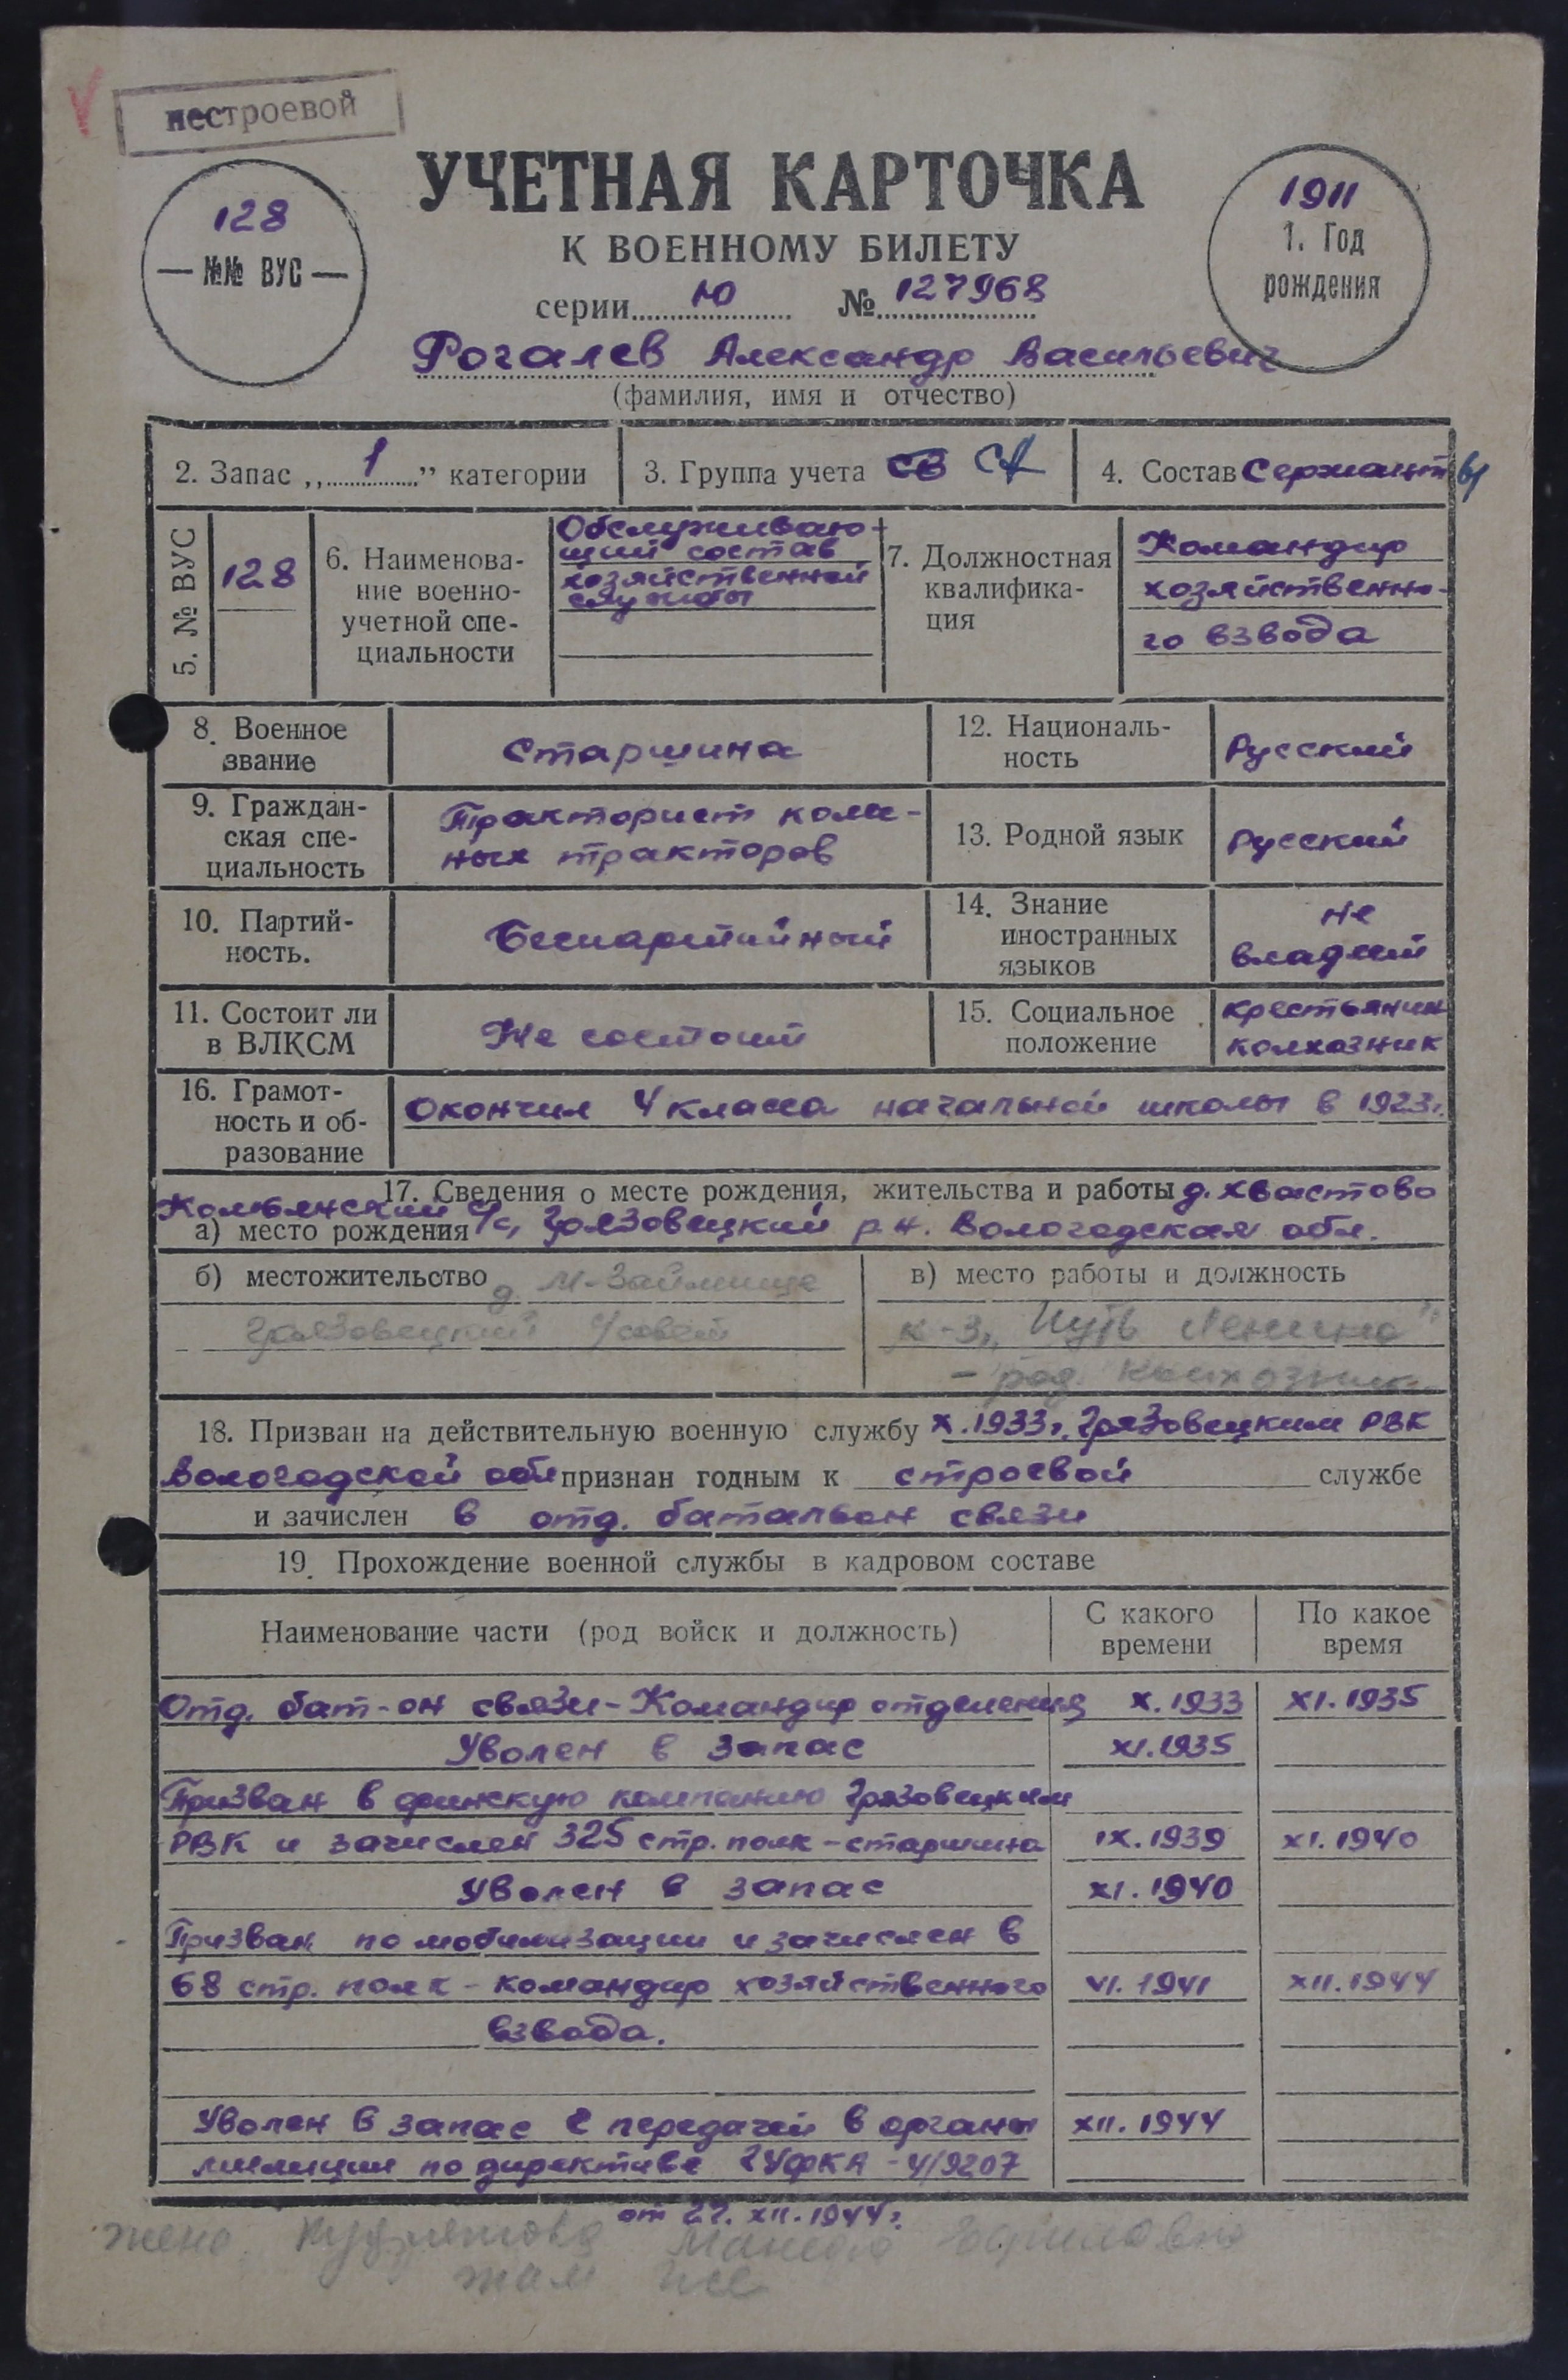 нестроевой
УЧЕТНАЯ КАРТОЧКА
К ВОЕННОМУ БИЛЕТУ
128
—№№ ВУС—
1911
1. Год
рождения
серии Ю № 127968
Рогалев Александр Васильевич
(фамилия, имя и отчество)
2. Запас „1” категории
3. Группа учета СВ СА
4. Состав Сержанты
5. № ВУС
128
6. Наименова-
ние военно-
учетной спе-
циальности
Обслуживаю-
щий состав
хозяйственной
службы
7. Должностная
квалифика-
ция
Командир
хозяйственно-
го взвода
8. Военное
звание
Старшина
12. Националь-
ность
Русский
9. Граждан-
ская спе-
циальность
Тракторист колес-
ных тракторов
13. Родной язык
Русский
10. Партий-
ность.
Беспартийный
14. Знание
иностранных
языков
не
владеет
11. Состоит ли
в ВЛКСМ
Не состоит
15. Социальное
положение
крестьянин
колхозник
16. Грамот-
ность и об-
разование
Окончил 4 класса начальной школы в 1923г.
17. Сведения о месте рождения, жительства и работы д. Хвастово
а) место рождения с/с, Грязовецкий р-н. Вологодская обл.
б) местожительство д. М-Займище
Грязовецкий с/совет
в) место работы и должность
к-з „Путь Ленина"
- ряд. колхозник
18. Призван на действительную военную службу X.1933г. Грязовецким РВК
Вологодской обл признан годным к строевой службе
и зачислен в отд. батальон связи
19. Прохождение военной службы в кадровом составе
Наименование части (род войск и должность)
С какого
времени
По какое
время
Отд. бат-он связи-Командир отделения X.1933 XI.1935
Уволен в запас XI.1935
Призван в финскую компанию Грязовецким
РВК и зачислен 325 стр. полк-старшина IX.1939 XI.1940
Уволен в запас XI.1940
Призван по мобилизации и зачислен в
68 стр. полк-командир хозяйственного VI.1941 XII.1944
взвода.
Уволен в запас с передачей в органы XII.1944
милиции по директиве ГУФКА-4/9207
от 27.XII.1944г.
жена
там же